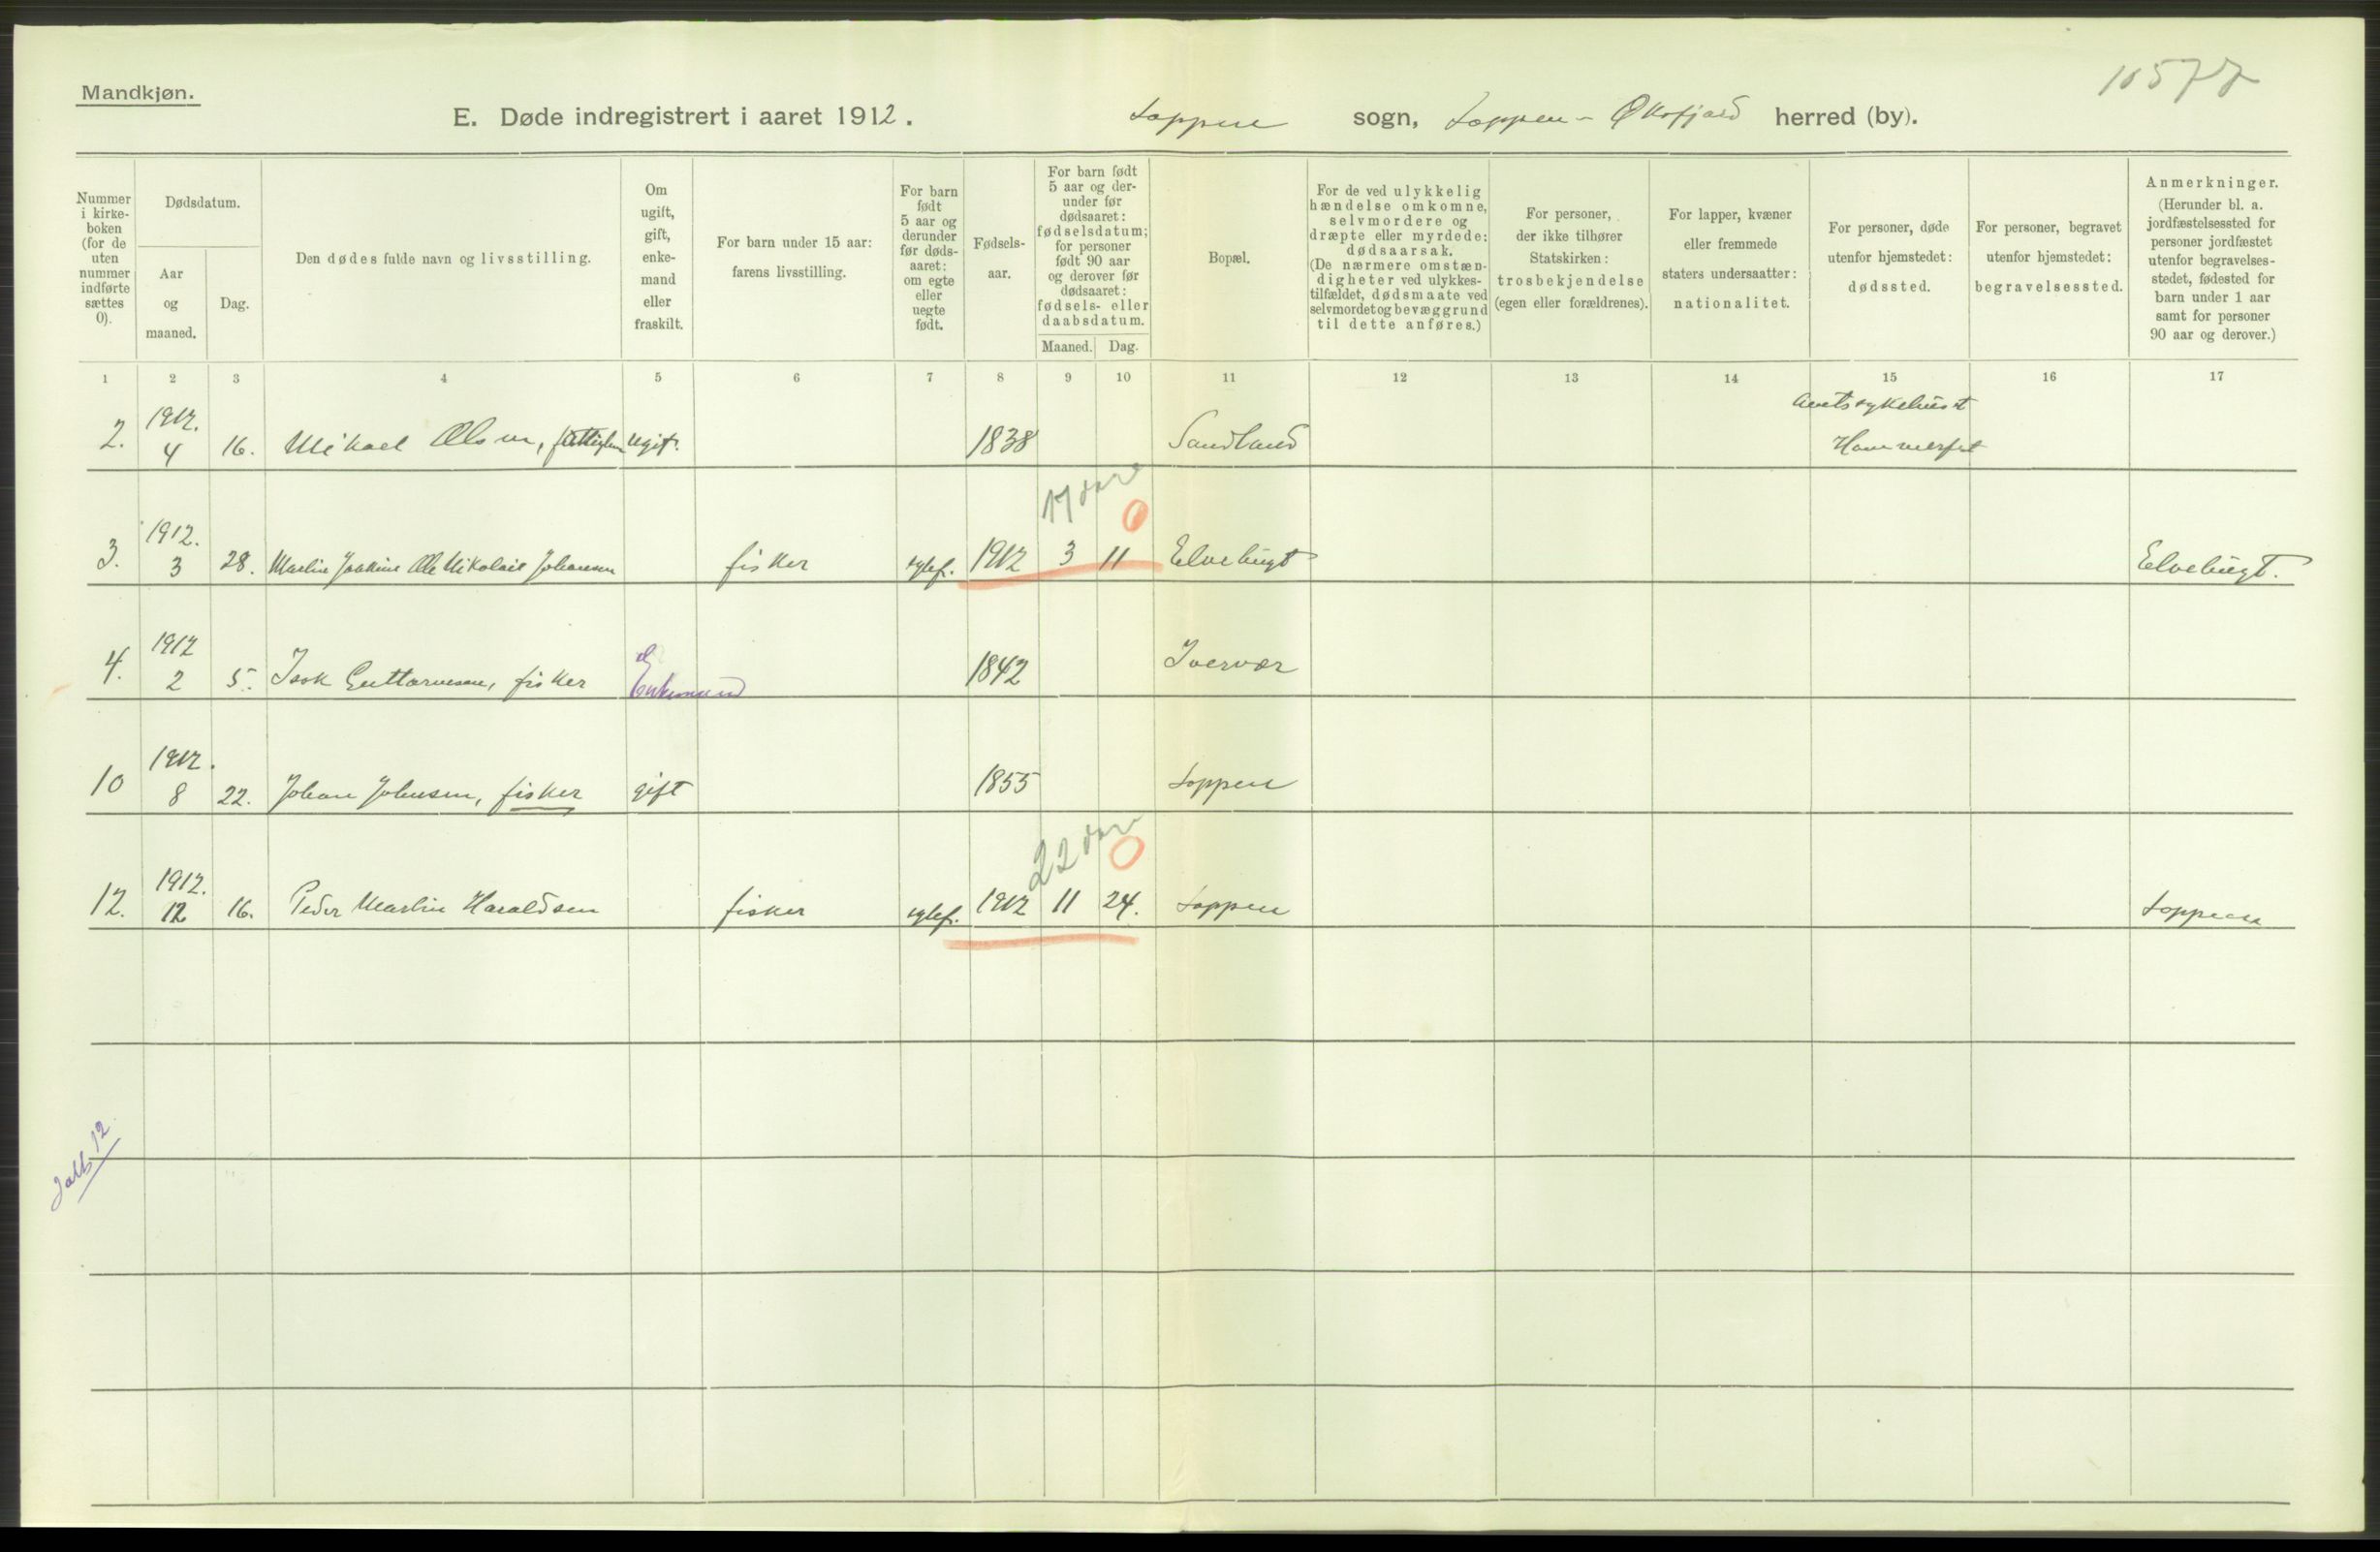 Mandkjøn.
10577
E. Døde indregistrert i aaret 1912. Loppen sogn, Loppen - Øksfjord herred (by).
Nummer i kirke- boken (for de uten nummer indførte sættes 0).
Dødsdatum.
Aar og maaned.
Dag.
Den dødes fulde navn og livsstilling.
Om ugift, gift, enke- mand eller fraskilt.
For barn under 15 aar: farens livsstilling.
For barn født 5 aar og derunder før døds- aaret: om egte eller uegte født.
Fødsels- aar.
For barn født 5 aar og der- under før dødsaaret: fødselsdatum; for personer født 90 aar og derover før dødsaaret: fødsels- eller daabsdatum.
Maaned.
Dag.
Bopæl.
For de ved ulykkelig hændelse omkomne, selvmordere og dræpte eller myrdede: dødsaarsak. (De nærmere omstæn- digheter ved ulykkes- tilfældet, dødsmaate ved selvmordet og bevæggrund til dette anføres.)
For personer, der ikke tilhører Statskirken: trosbekjendelse (egen eller forældrenes).
For lapper, kvæner eller fremmede staters undersaatter: nationalitet.
For personer, døde utenfor hjemstedet: dødssted.
For personer, begravet utenfor hjemstedet: begravelsessted.
Anmerkninger. (Herunder bl. a. jordfæstelsessted for personer jordfæstet utenfor begravelses- stedet, fødested for barn under 1 aar samt for personer 90 aar og derover.)
1 2 3 4 5 6 7 8 9 10 11 12 13 14 15 16 17
2. 1912. 4 16. Mikael Olsen, fattiglem ugift. 1838 Sandland Amtssykehuset Hammerfest
17 dare 0
3. 1912. 3 28. Martin Joakim Ole Nikolai Johansen fisker egtef. 1912 3 11 Elvebugt Elvebugt.
4. 1912 2 5. Isak Guttormsen, fisker Enkemand 1842 Ivervær
10 1912. 8 22. Johan Johnsen, fisker gift 1855 Loppen
22 dare 0
12. 1912. 12 16. Peder Martin Haraldsen fisker egtef. 1912 11 24. Loppen Loppen
12